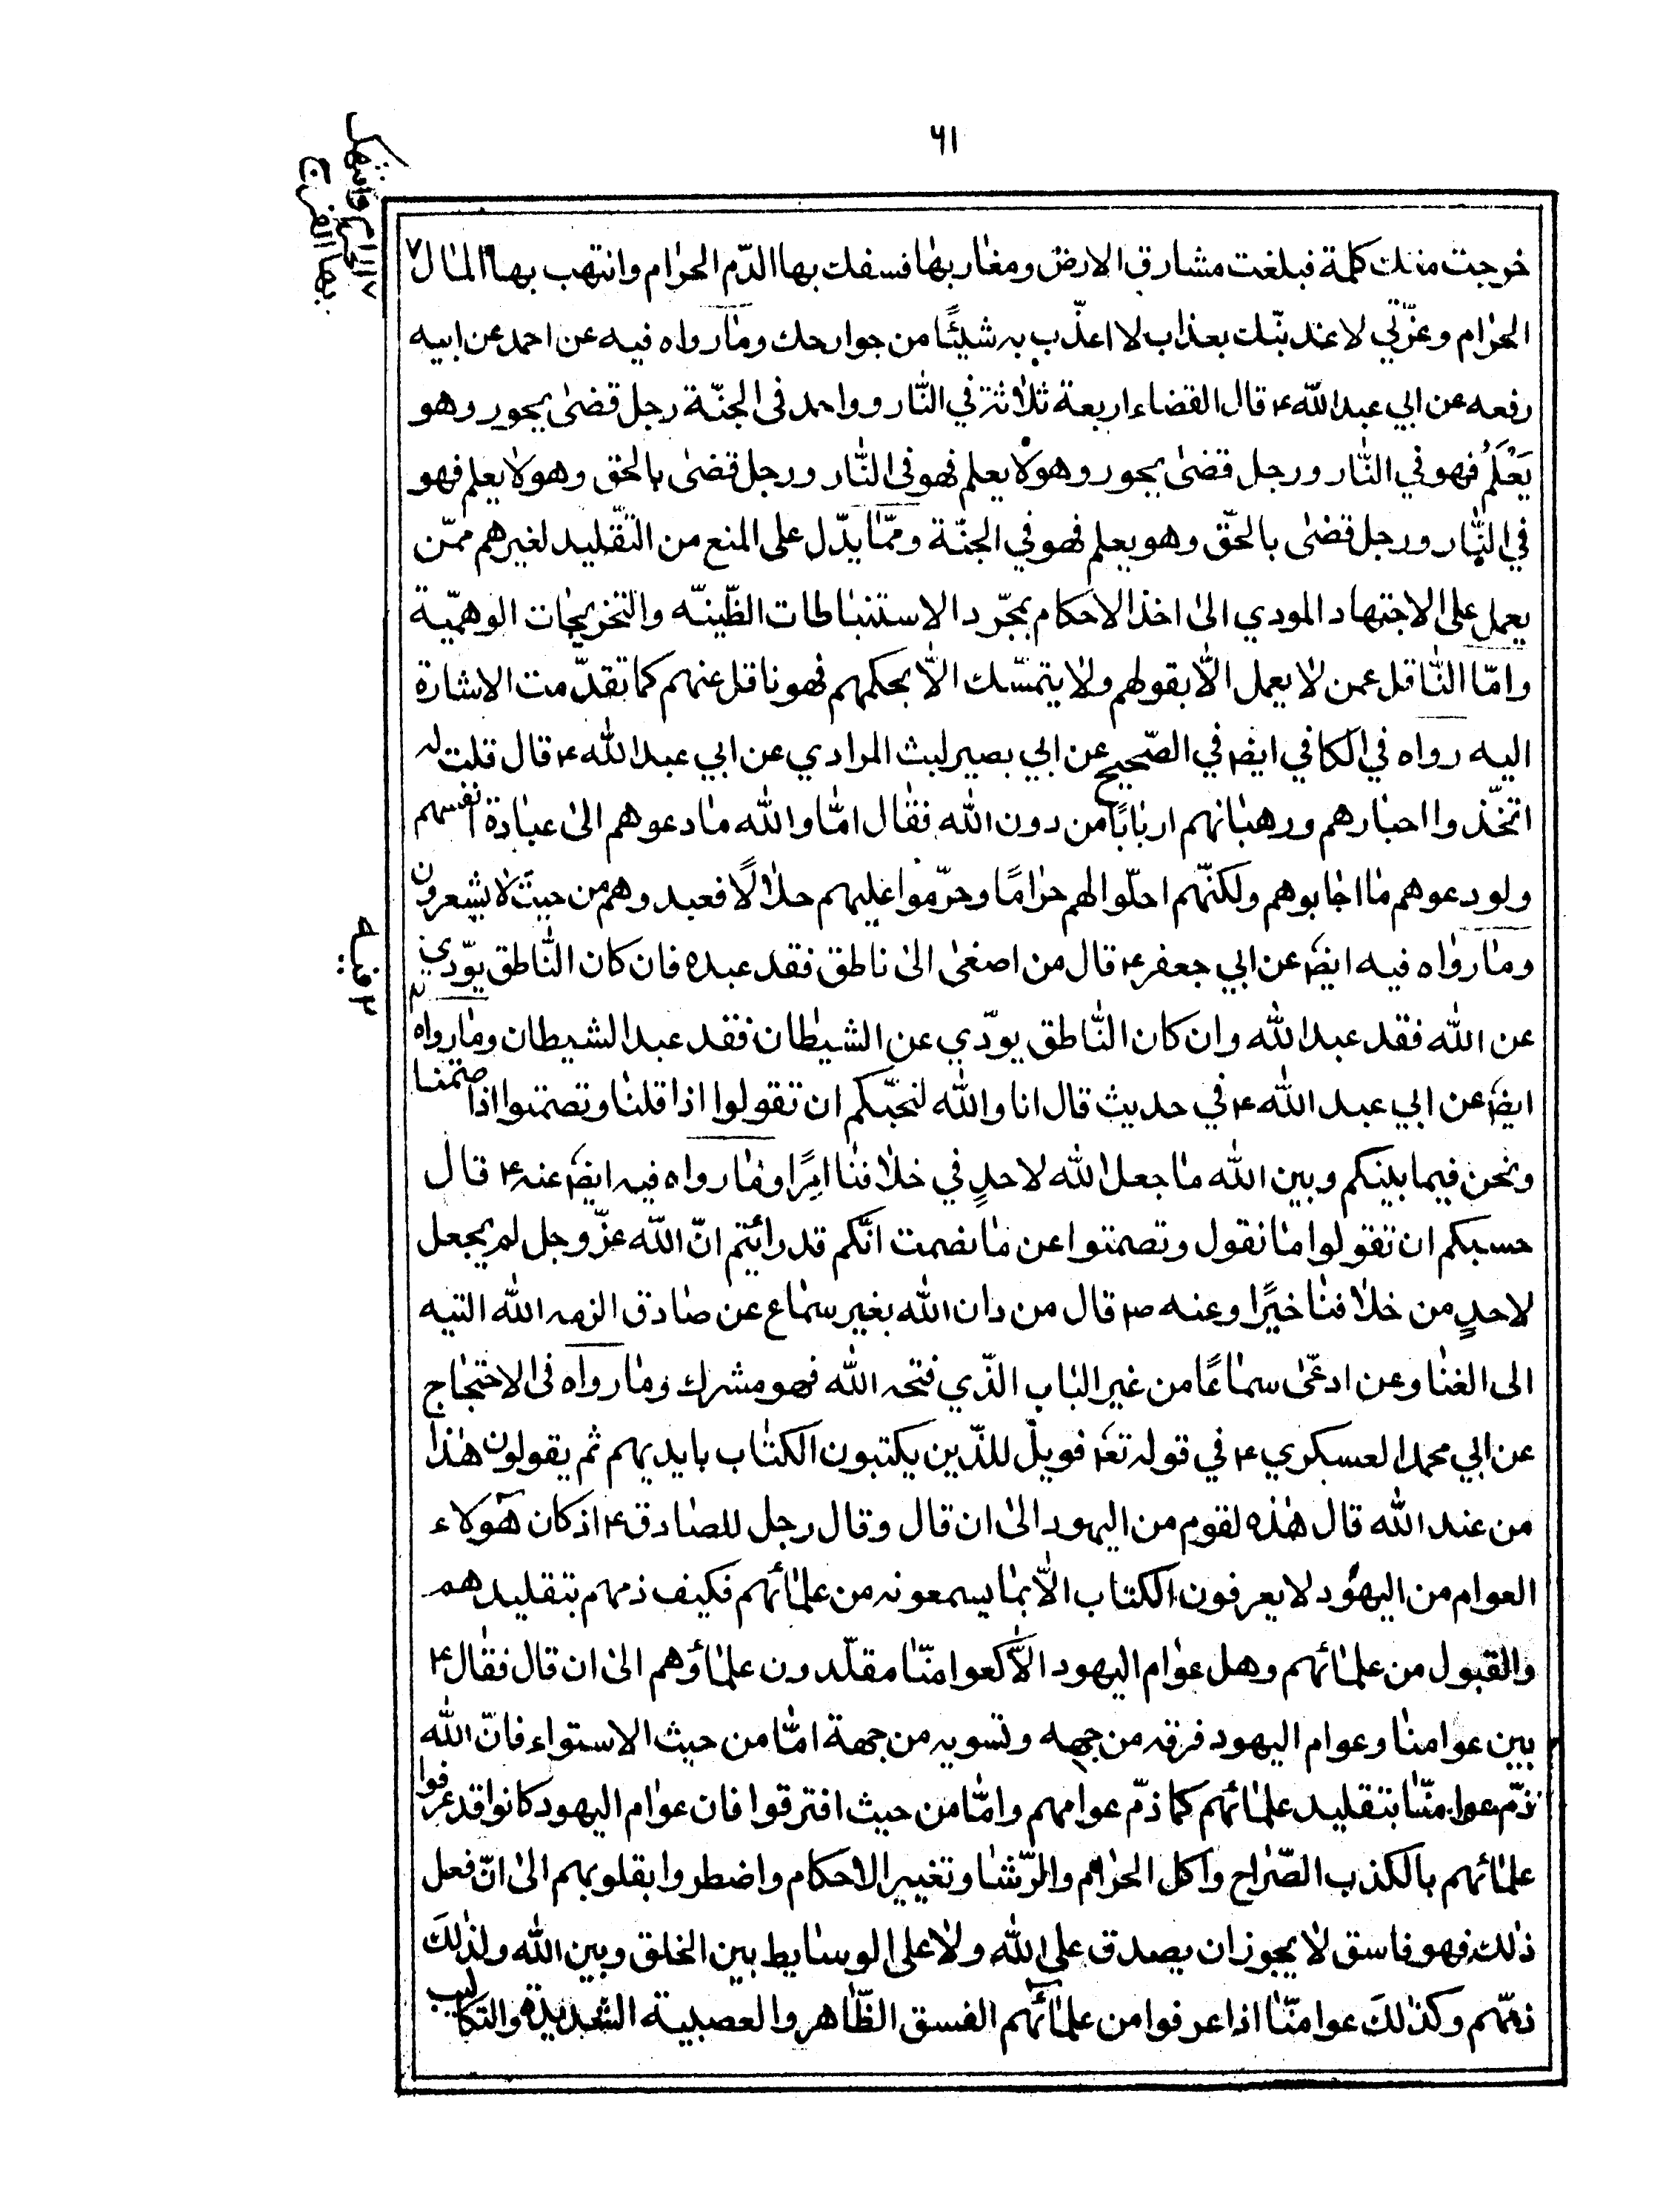 ٦١
خرجت منك كلمة فبلغت مشارق الارض ومغاربها فسفك بها الدّم الحرام وانتهب بها المال٧
الحرام وعزّتي لاعذبنّك بعذاب لا اعذّب به شيئًا من جوارحك وما رواه فيه عن احمد عن ابيه
رفعه عن ابي عبد الله ع قال القضاء اربعة ثلاثة في النّار وواحد في الجنّة رجل قضى بجور وهو
يَعْلَمُ فهو في النّار ورجل قضى بجور وهو لا يعلم فهو في النّار ورجل قضى بالحق وهو لا يعلم فهو
في النّار ورجل قضى بالحقّ وهو يعلم فهو في الجنّة وممّا يدّل على المنع من التّقليد لغيرهم ممّن
يعمل على الاجتهاد المودي الى اخذ الاحكام بمجّرد الاستنباطات الظّينّه والتخريجات الوهميّة
وامّا النّاقل عمن لا يعمل الّا بقولهم ولا يتمسّك الّا بحكمهم فهو ناقل عنهم كما تقدّمت الاشارة
اليه رواه في الكافي ايض في الصّحيح عن ابي بصير ليث المرادي عن ابي عبد الله ع قال قلت له
اتخّذوا احبارهم ورهبانهم اربابًا من دون الله فقال امّا والله ما دعوهم الى عبادة انفسهم
ولو دعوهم ما اجابوهم ولكنّهم احلّوا لهم حرامًا وحرّموا عليهم حلالًا فعبدوهم من حيث لا يشعرون
وما رواه فيه ايض عن ابي جعفر ع قال من اصغى الى ناطق فقد عبده فان كان النّاطق يوّدي
عن الله فقد عبد الله وان كان النّاطق يودّي عن الشيطان فقد عبد الشيطان وما رواه
ايض عن ابي عبد الله ع في حديث قال انا والله لنحبّكم ان تقولوا اذا قلنا وتصمتوا اذا صمتنا
ونحن فيما بينكم وبين الله ما جعل الله لاحدٍ في خلافنا امرًا وما رواه فيه ايض عنه ع قال
حسبكم ان تقولوا ما نقول وتصمتوا عن ما نصمت انّكم قد رائتم انّ الله عزّ وجل لم يجعل
لاحدٍ من خلافنا خيرًا وعنه ص قال من دان الله بغير سماع عن صادق الزمه الله التيه
الى الغنا وعن ادعّى سماعًا من غير الباب الذّي فتحه الله فهو مشرك وما رواه في الاحتجاج
عن ابي محمد العسكري ع في قوله تع فويلٌ للذّين يكتبون الكتاب بايديهم ثم يقولون هذا
من عند الله قال هذه لقوم من اليهود الى ان قال وقال رجل للصادق ع اذ كان هؤلاء
العوام من اليهود لا يعرفون الكتاب الّا بما يسمعونه من علمائهم فكيف ذمهم بتقليدهم
والقبول من علمائهم وهل عوام اليهود الّا كعوامنّا مقلّدون علماؤهم الى ان قال فقال ع
بين عوامنا وعوام اليهود فرقه من جهه وتسويه من جهة امّا من حيث الاستواء فانّ الله
ذمّ عوامنّا بتقليد علمائهم كما ذمّ عوامهم وامّا من حيث افترقوا فان عوام اليهود كانوا قد عرفوا
علمائهم بالكذب الصّراح واكل الحرام والرّشا وتغيير الاحكام واضطروا بقلوبهم الى انّ فعل
ذلك فهو فاسق لا يجوز ان يصدق على الله ولا على الوسايط بين الخلق وبين الله ولذلك
ذمّهم وكذلك عوامنّا اذا عرفوا من علمائهم الفسق الظّاهر والعصبية الشديدة والتكاليب
٧ الحرام وانتهك
بها الفرج
٢ فيه